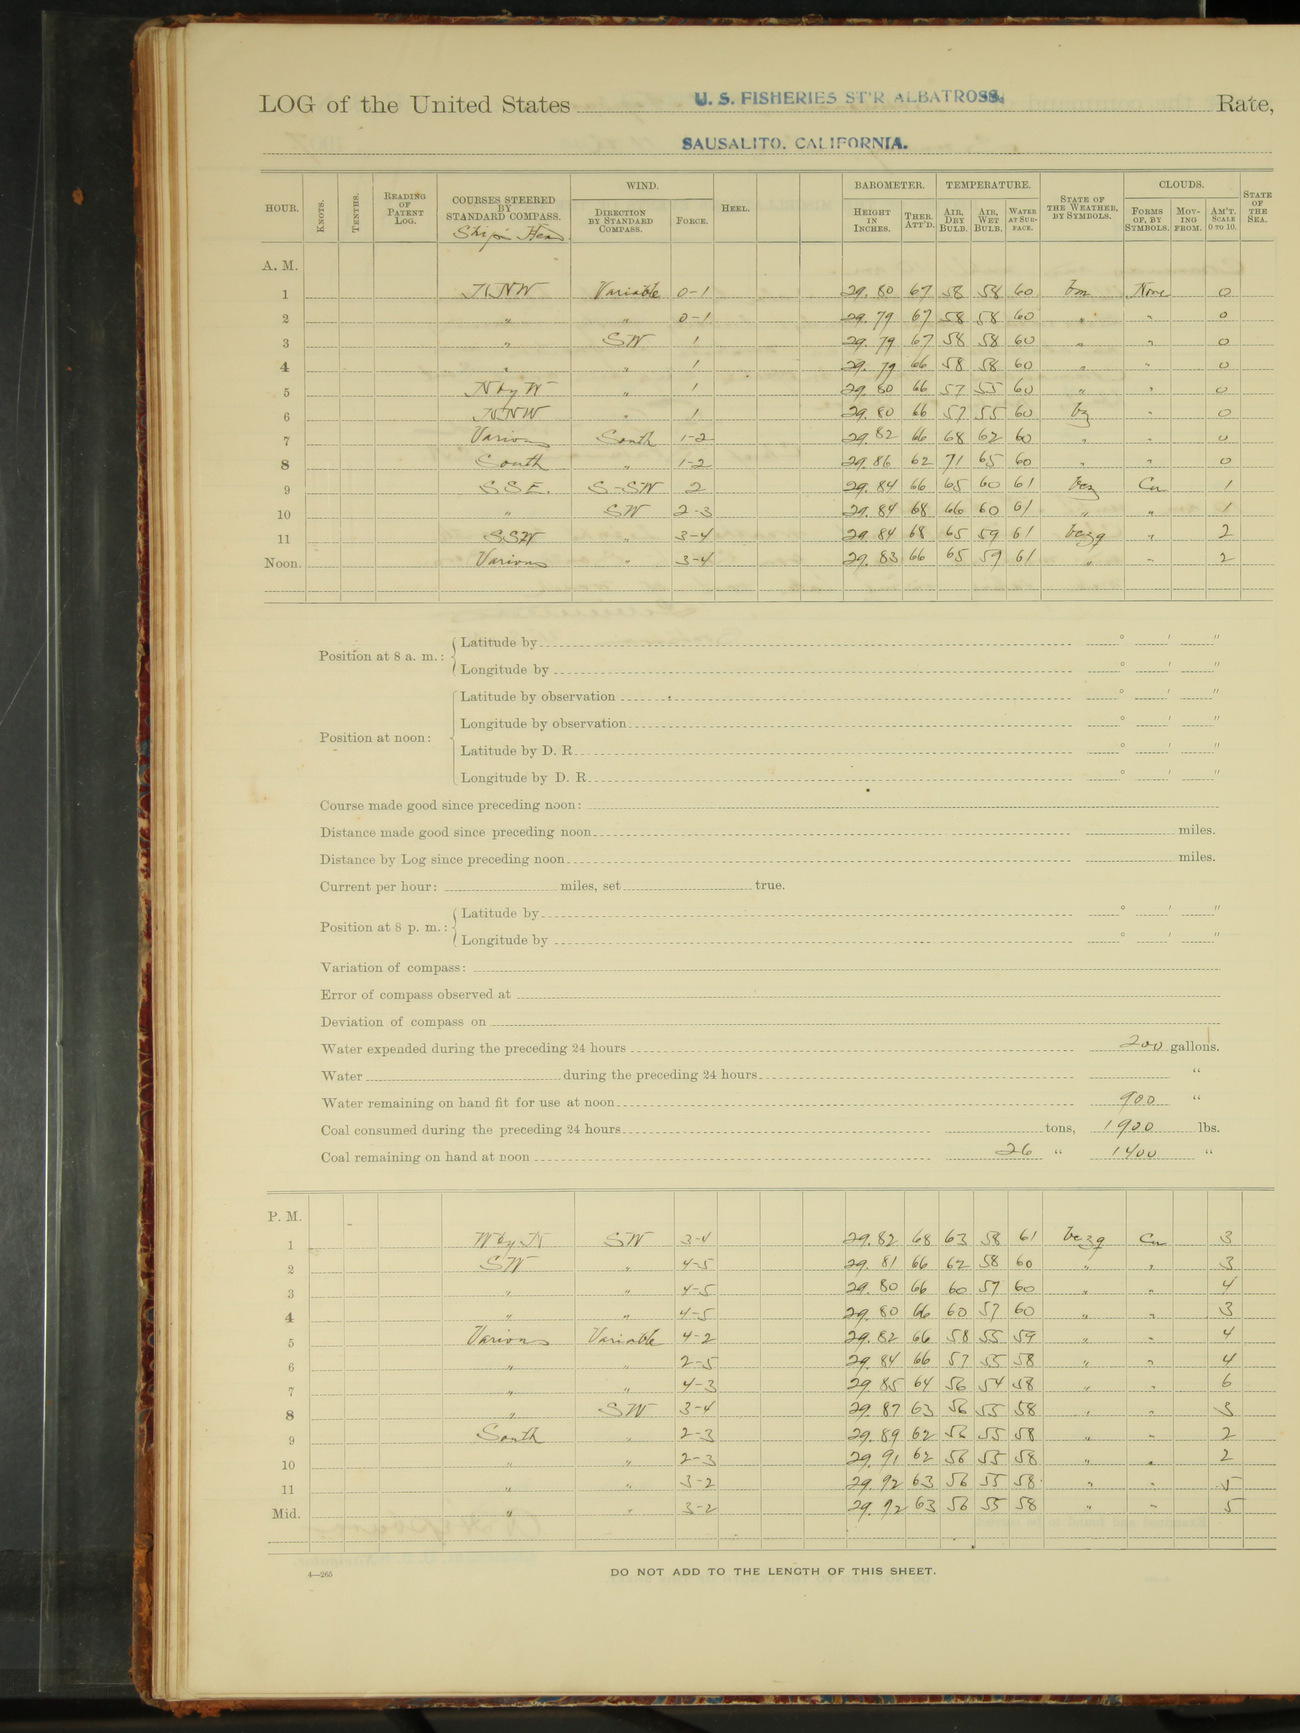 LOG of the United States U. S. FISHERIES ST'R ALBATROSS. Rate,
SAUSALITO. CALIFORNIA.
HOUR. KNOTS. TENTHS. READING OF PATENT LOG. COURSES STEERED BY STANDARD COMPASS. Ship's Head WIND. DIRECTION BY STANDARD COMPASS. FORCE. HEEL. BAROMETER. HEIGHT IN INCHES. THER. ATT'D. TEMPERATURE. AIR, DRY BULB. AIR, WET BULB. WATER AT SURFACE. STATE OF THE WEATHER, BY SYMBOLS. CLOUDS. FORMS OF, BY SYMBOLS. MOVING FROM. AM'T. SCALE 0 TO 10. STATE OF THE SEA.
A. M.
1 NNW Variable 0-1 29.80 67 58 58 60 bm None 0
2 " " 0-1 29.79 67 58 58 60 " " 0
3 " SW 1 29.79 67 58 58 60 " " 0
4 " " 1 29.79 66 58 58 60 " " 0
5 N by W " 1 29.80 66 57 55 60 " " 0
6 NNW " 1 29.80 66 57 55 60 bz " 0
7 Various South 1-2 29.82 66 68 62 60 " " 0
8 South " 1-2 29.86 62 71 65 60 " " 0
9 SSE. S-SW 2 29.84 66 65 60 61 bcz Cu 1
10 " SW 2-3 29.84 68 66 60 61 " " 1
11 SSW " 3-4 29.84 68 65 59 61 bczq " 2
Noon. Various " 3-4 29.83 66 65 59 61 " " 2
Position at 8 a. m.: Latitude by ° ′ ″
Longitude by ° ′ ″
Position at noon: Latitude by observation ° ′ ″
Longitude by observation ° ′ ″
Latitude by D. R. ° ′ ″
Longitude by D. R. ° ′ ″
Course made good since preceding noon:
Distance made good since preceding noon miles.
Distance by Log since preceding noon miles.
Current per hour: miles, set true.
Position at 8 p. m.: Latitude by ° ′ ″
Longitude by ° ′ ″
Variation of compass:
Error of compass observed at
Deviation of compass on
Water expended during the preceding 24 hours 200 gallons.
Water during the preceding 24 hours "
Water remaining on hand fit for use at noon 900 "
Coal consumed during the preceding 24 hours tons, 1900 lbs.
Coal remaining on hand at noon 26 " 1400 "
P. M.
1 W by N SW 3-4 29.82 68 63 58 61 bczq Cu 3
2 SW " 4-5 29.81 66 62 58 60 " " 3
3 " " 4-5 29.80 66 60 57 60 " " 4
4 " " 4-5 29.80 66 60 57 60 " " 3
5 Various Variable 4-2 29.82 66 58 55 59 " " 4
6 " " 2-5 29.84 66 57 55 58 " " 4
7 " " 4-3 29.85 64 56 54 58 " " 6
8 " SW 3-4 29.87 63 56 55 58 " " 3
9 South " 2-3 29.89 62 56 55 58 " " 2
10 " " 2-3 29.91 62 56 55 58 " " 2
11 " " 3-2 29.92 63 56 55 58 " " 5
Mid. " " 3-2 29.92 63 56 55 58 " " 5
4—265 DO NOT ADD TO THE LENGTH OF THIS SHEET.